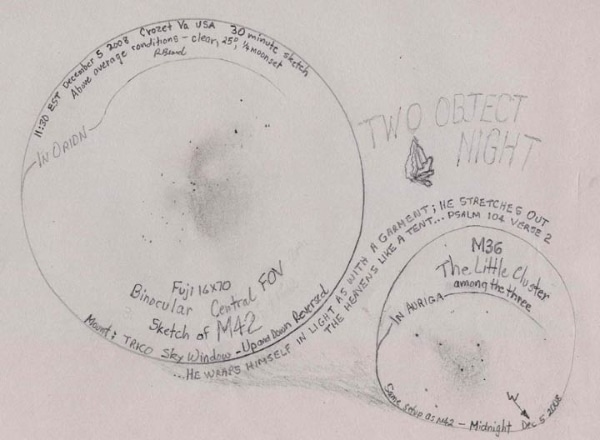 11:30 EST December 5 2008 Crozet Va USA 30 minute sketch
Above average conditions - clear, 25°, ¼ moonset
IN ORION
TWO OBJECT
NIGHT
Fuji 16x70
Binocular Central FOV
Sketch of M42
Mount: TRICO Sky Window - Up and Down Reversed
...HE WRAPS HIMSELF IN LIGHT AS WITH A GARMENT; HE STRETCHES OUT
THE HEAVENS LIKE A TENT... PSALM 104 VERSE 2
M36
The Little Cluster
among the three
IN AURIGA
W
Same setup as M42 - Midnight Dec 5 2008